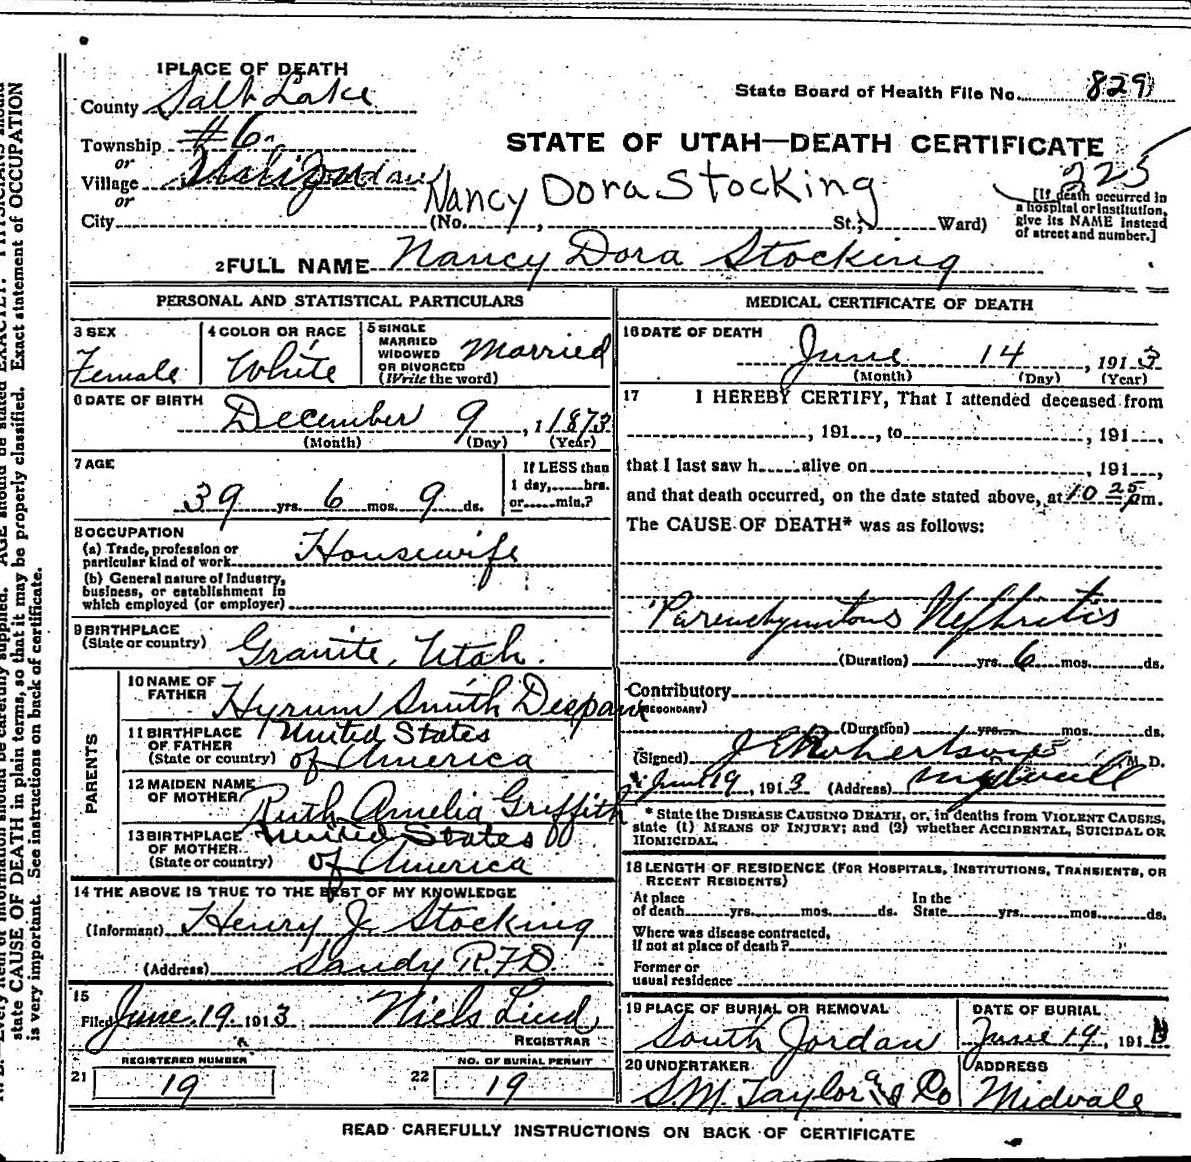 1 PLACE OF DEATH
County Salt Lake
State Board of Health File No. 829
Township #6
or
STATE OF UTAH—DEATH CERTIFICATE
Village Jordan
225
or
Nancy Dora Stocking
City (No. , St.; Ward)
[If death occurred in
a hospital or institution,
give its NAME instead
of street and number.]
2 FULL NAME Nancy Dora Stocking
PERSONAL AND STATISTICAL PARTICULARS
3 SEX
Female
4 COLOR OR RACE
White
5 SINGLE
MARRIED
WIDOWED
OR DIVORCED
(Write the word)
Married
6 DATE OF BIRTH
December 9, 1873
(Month) (Day) (Year)
7 AGE
39 yrs. 6 mos. 9 ds.
If LESS than
1 day, hrs.
or min.?
8 OCCUPATION
(a) Trade, profession or
particular kind of work Housewife
(b) General nature of industry,
business, or establishment in
which employed (or employer)
9 BIRTHPLACE
(State or country) Granite, Utah.
PARENTS
10 NAME OF
FATHER Hyrum Smith Despain
11 BIRTHPLACE
OF FATHER
(State or country) United States
of America
12 MAIDEN NAME
OF MOTHER Ruth Amelia Griffith
13 BIRTHPLACE
OF MOTHER
(State or country) United States
of America
14 THE ABOVE IS TRUE TO THE BEST OF MY KNOWLEDGE
(Informant) Henry J. Stocking
(Address) Sandy R.F.D.
15
Filed June 19 1913 Niels Lind
REGISTRAR
REGISTERED NUMBER
21 19
NO. OF BURIAL PERMIT
22 19
MEDICAL CERTIFICATE OF DEATH
16 DATE OF DEATH
June 14, 1913
(Month) (Day) (Year)
17 I HEREBY CERTIFY, That I attended deceased from
, 191 , to , 191 ,
that I last saw h alive on , 191 ,
and that death occurred, on the date stated above, at 10 25 pm.
The CAUSE OF DEATH* was as follows:
Parenchymatous Nephritis
(Duration) yrs. 6 mos. ds.
Contributory
(SECONDARY)
(Duration) yrs. mos. ds.
(Signed) J E Robertson M. D.
June 19, 1913 (Address) Midvale
* State the DISEASE CAUSING DEATH, or, in deaths from VIOLENT CAUSES,
state (1) MEANS OF INJURY; and (2) whether ACCIDENTAL, SUICIDAL OR
HOMICIDAL.
18 LENGTH OF RESIDENCE (FOR HOSPITALS, INSTITUTIONS, TRANSIENTS, OR
RECENT RESIDENTS)
At place
of death yrs. mos. ds.
In the
State yrs. mos. ds.
Where was disease contracted,
if not at place of death?
Former or
usual residence
19 PLACE OF BURIAL OR REMOVAL
South Jordan
DATE OF BURIAL
June 19, 191
20 UNDERTAKER
S.M. Taylor and Co
ADDRESS
Midvale
READ CAREFULLY INSTRUCTIONS ON BACK OF CERTIFICATE
state CAUSE OF DEATH in plain terms, so that it may be properly classified. Exact statement of OCCUPATION
is very important. See instructions on back of certificate.